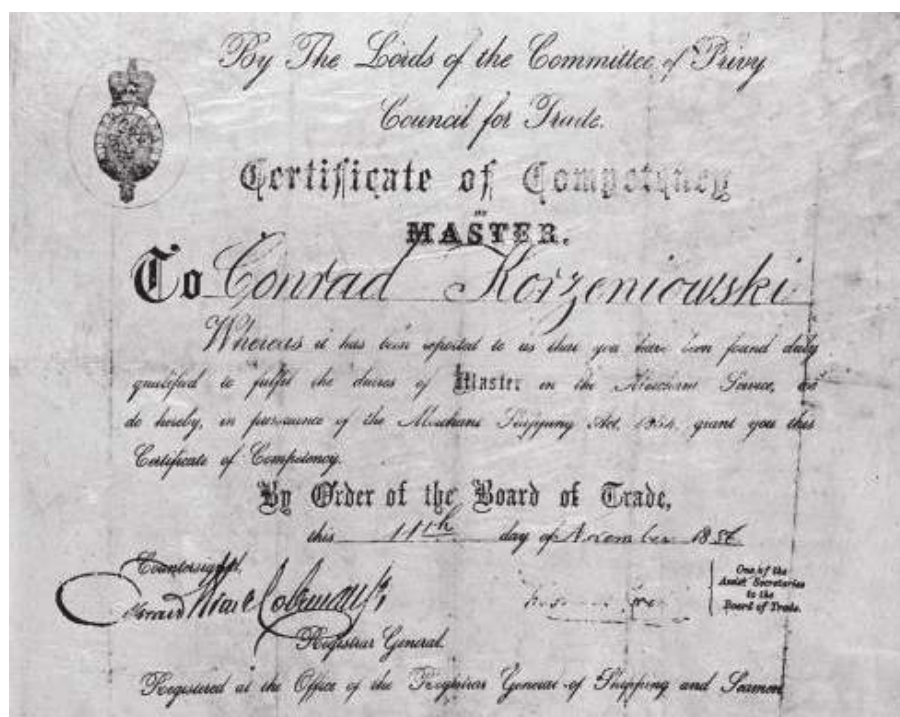 By The Lords of the Committee of Privy
Council for Trade.
Certificate of Competency
AS
MASTER.
To Conrad Korzeniowski
Whereas it has been reported to us that you have been found duly
qualified to fulfil the duties of Master in the Merchant Service, we
do hereby, in pursuance of the Merchant Shipping Act, 1854, grant you this
Certificate of Competency.
By Order of the Board of Trade,
this 11th day of November 1886
Countersigned,
Registrar General.
One of the
Assist Secretaries
to the
Board of Trade.
Registered at the Office of the Registrar General of Shipping and Seamen